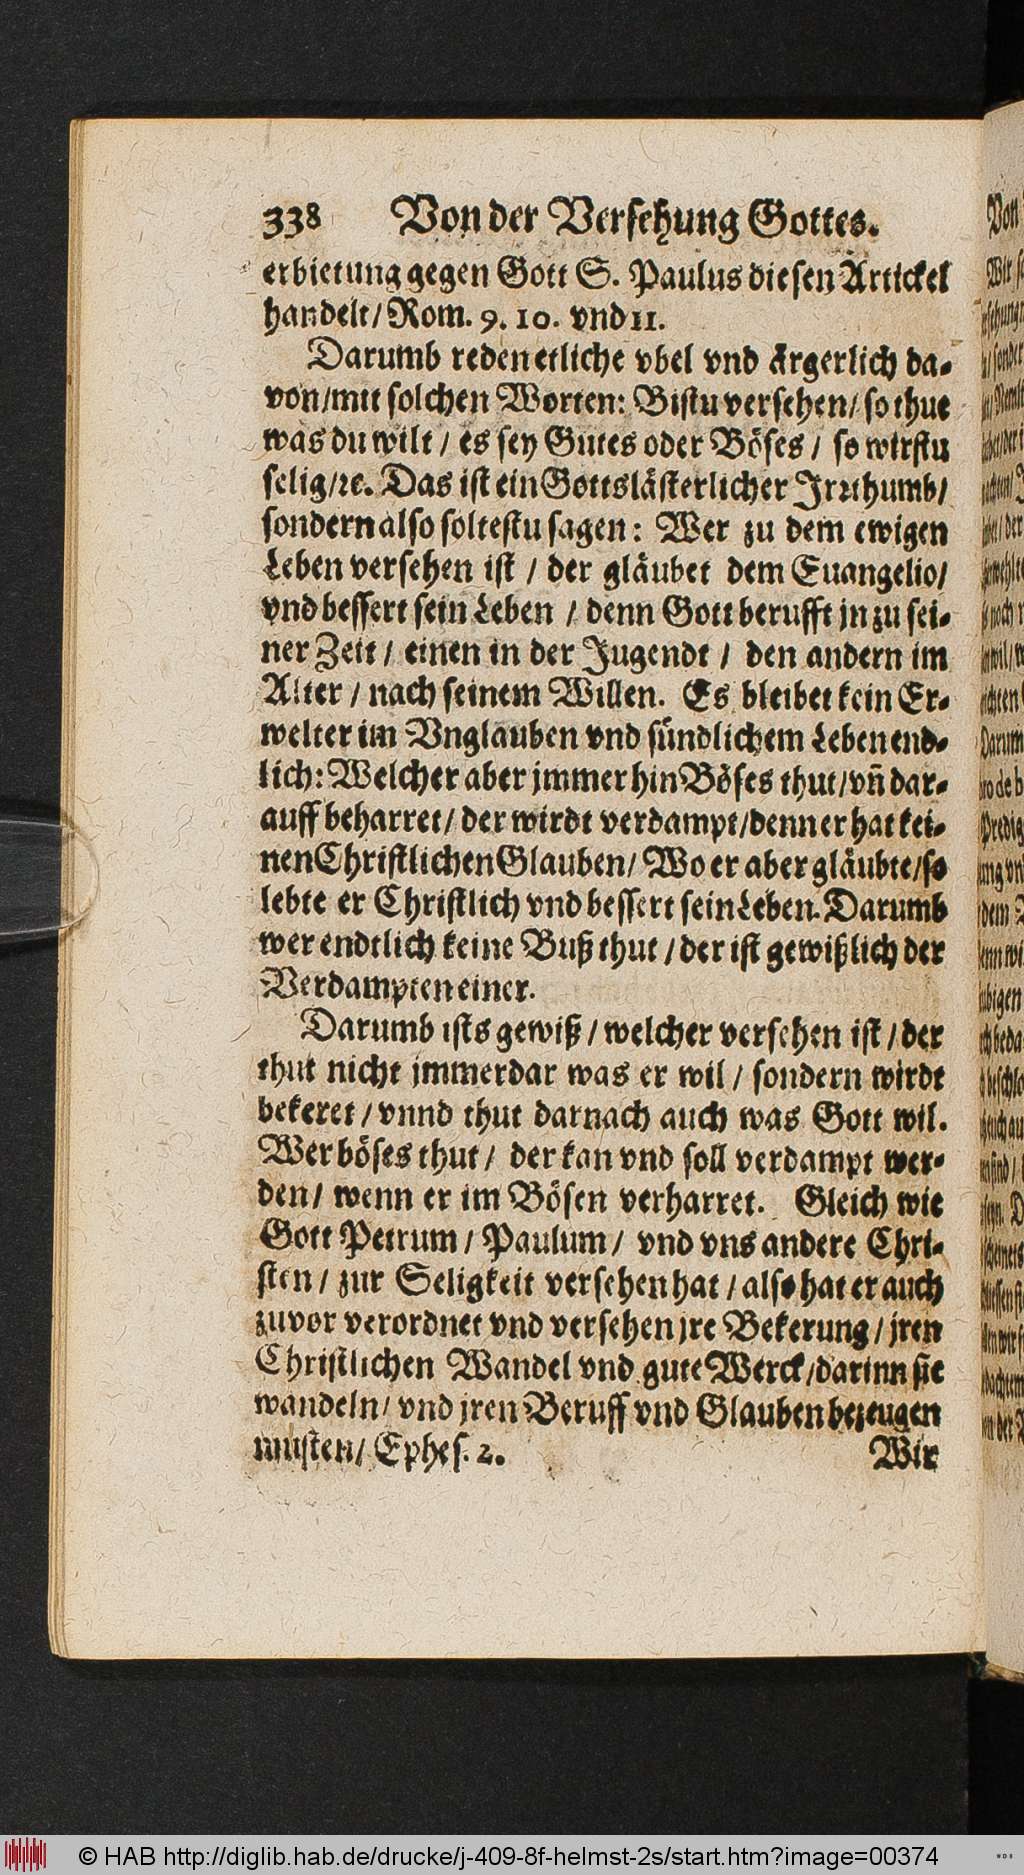 338 Von der Versehung Gottes.
erbietung gegen Gott S. Paulus diesen Artickel
handelt / Rom. 9. 10. vnd 11.
Darumb reden etliche vbel vnd ärgerlich da-
von / mit solchen Worten: Bistu versehen / so thue
was du wilt / es sey Gutes oder Böses / so wirstu
selig / ꝛc. Das ist ein Gottslästerlicher Irꝛthumb /
sondern also soltestu sagen: Wer zu dem ewigen
Leben versehen ist / der gläubet dem Euangelio /
vnd bessert sein Leben / denn Gott berufft jn zu sei-
ner Zeit / einen in der Jugendt / den andern im
Alter / nach seinem Willen. Es bleibet kein Er-
welter im Vnglauben vnd sündlichem Leben end-
lich: Welcher aber jmmer hin Böses thut / vñ dar-
auff beharret / der wirdt verdampt / denn er hat kei-
nen Christlichen Glauben / Wo er aber gläubte / so
lebte er Christlich vnd bessert sein Leben. Darumb
wer endtlich keine Buß thut / der ist gewißlich der
Verdampten einer.
Darumb ists gewiß / welcher versehen ist / der
thut nicht jmmerdar was er wil / sondern wirdt
bekeret / vnnd thut darnach auch was Gott wil.
Wer böses thut / der kan vnd soll verdampt wer-
den / wenn er im Bösen verharret. Gleich wie
Gott Petrum / Paulum / vnd vns andere Chri-
sten / zur Seligkeit versehen hat / also hat er auch
zuvor verordnet vnd versehen jre Bekerung / jren
Christlichen Wandel vnd gute Werck / darinn sie
wandeln / vnd jren Beruff vnd Glauben bezeugen
musten / Ephes. 2. Wir
© HAB http://diglib.hab.de/drucke/j-409-8f-helmst-2s/start.htm?image=00374